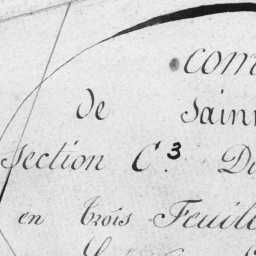 com
de Sain
Section C.3 D
en trois Feuil